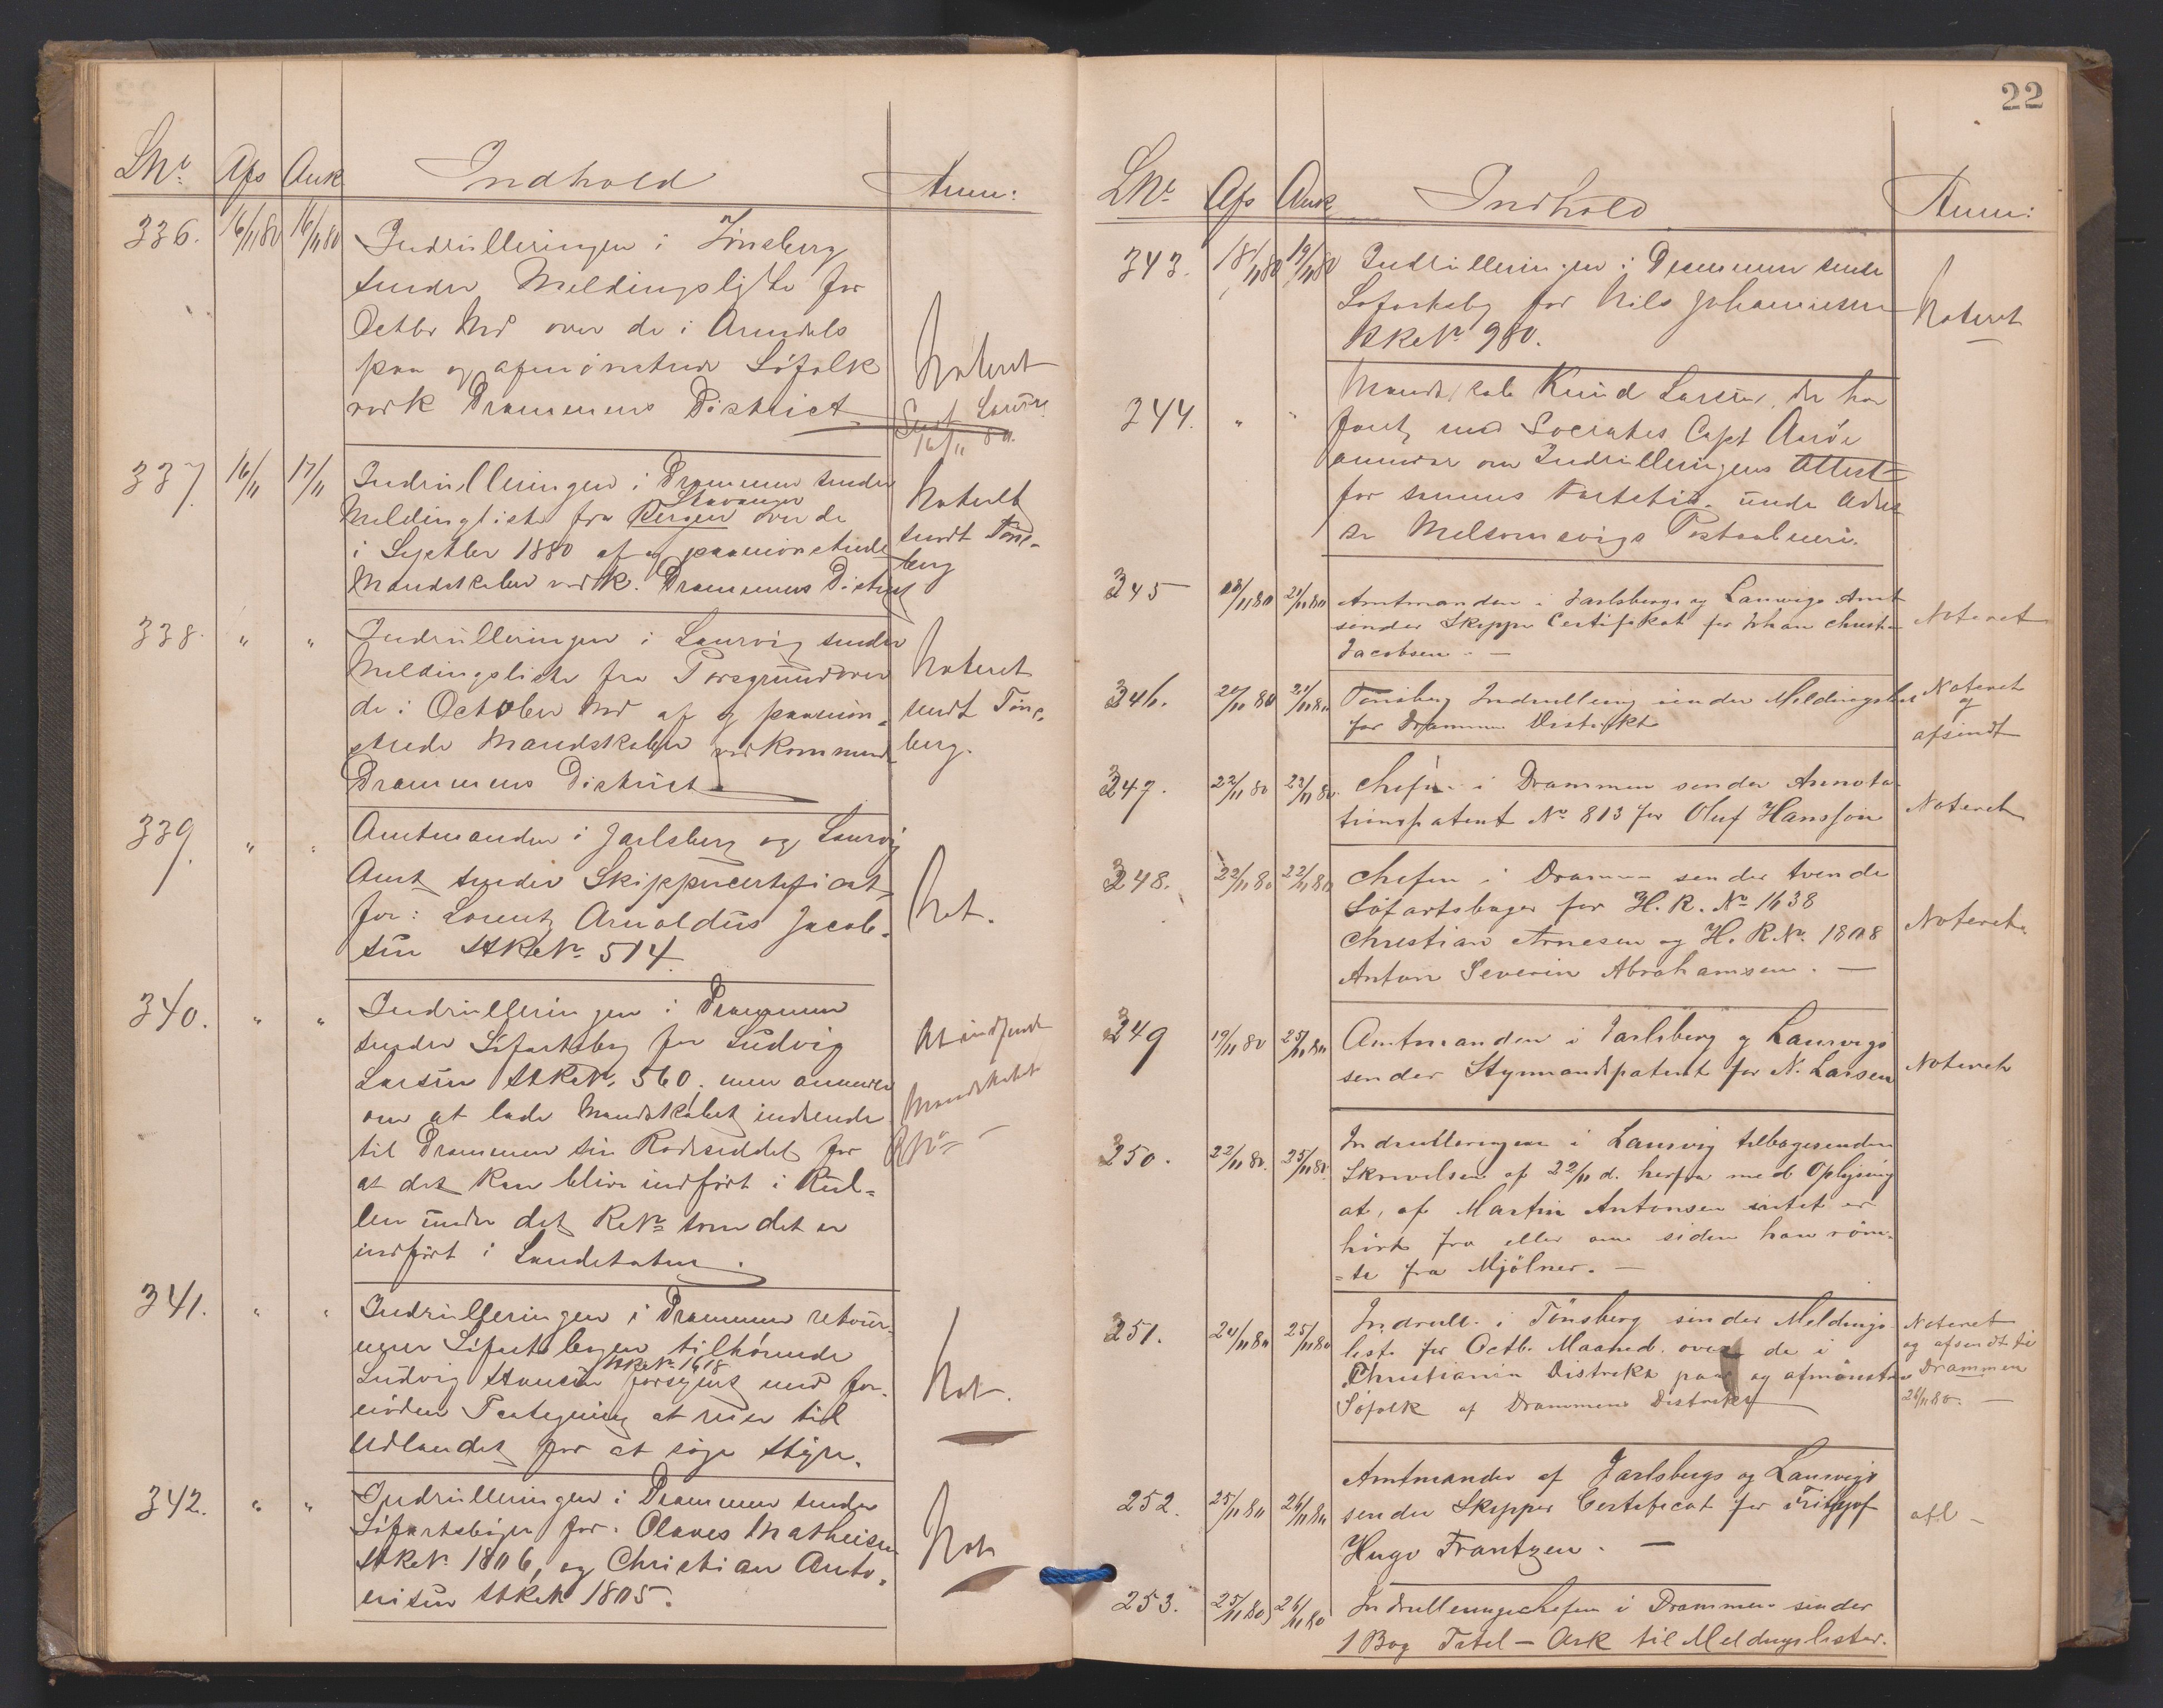 LNr. Afs Ank Indhold Anm:
336. 16/11 80 16/11 80 Indrulleringen i Tönsberg
sender Meldingsliste for
Octbr Md over de i Arendals
paa og afmönstrede Söfolk Noteret
vedk Drammens District Sendt Laurv.
16/11 80.
337. 16/11 17/11 Indrulleringen i Drammen sender Noteret
Stavanger
Meldingsliste fra Bergen over de sendt Töns-
i Septbr 1880 af og paamönstrede berg
Mandskaber vedk. Drammens District
338. " " Indrulleringen i Laurvig sender
Meldingsliste fra Porsgrund over Noteret
de i October Md af og paamön- sendt Töns-
strede Mandskaber vedkommende berg.
Drammens District
339. " " Amtmanden i Jarlsberg og Laurvig
Amt sender Skippercertificat
for: Lorentz Arnoldus Jacob- Not.
sen StkrNr. 514
340. " " Indrulleringen i Drammen
sender Söfartsbog for Ludvig At indsende
Larsen StkrNr. 560. men anmoder Mandskabet
om at lade Mandskabet indsende
til Drammen sin Rodeseddel for
at det kan blive indfört i Rul-
len under det RNr som det er
indfört i Landetaten.
341. " " Indrulleringen i Drammen retour-
nerer Söfartsbogen tilhörende
StkrNr. 1618
Ludvig Hansen forsynet med for- Not.
nöden Paategning at reise til
Udlandet for at söge Hyre.
342. " " Indrulleringen i Drammen sender
Söfartsböger for: Olaves Mathisen Not
StkrNr. 1806, og Christian Anto-
nisen Stkr 1805.
22
LNr. Afs Ank Indhold Anm:
343. 18/11 80 19/11 80 Indrulleringen i Drammen sender
Söfartsbog for Nils Johannesen Noteret
RkrNr. 980.
344. " " Mandskab Knud Larsen, der har
faret med Socrates Capt Aaröe
anmoder om Indrulleringens Attest
for sammes Fartstid under Adres-
se Melsomvigs Postaabneri.
345 20/11 80 21/11 80 Amtmanden i Jarlsbergs og Laurvigs Amt
sender Skipper Certifikat for Johan Christian Noteret
Jacobsen. —
346. 20/11 80 21/11 80 Tönsberg Indrullering sender Meldingsliste Noteret
for Drammens Distrikt og
afsendt
347. 22/11 80 22/11 80 Chefen i Drammen sender Annota-
tionspatent No 813 for Oluf Hansson Noteret
348. 22/11 80 22/11 80 Chefen i Drammen sender tvende
Söfartsboger for H. R. No 1638
Christian Arnesen og H. R. No. 1808 Noteret.
Anton Severin Abrahamsen. —
349 19/11 80 25/11 80 Amtmanden i Jarlsberg og Laurvigs
sender Styrmandspatent for N. Larsen Noteret
250. 22/11 80. 25/11 80. Indrulleringen i Laurvig tilbagesender
Skrivelsen af 22/11 d. herfra med Oplysning
at, af Martin Antonsen intet er
hört fra eller om siden han röm-
-te fra Mjölner. —
251. 24/11 80 25/11 80 Indrull. i Tönsberg sender Meldings- Noteret
liste for Octb. Maaned. over de i og afsendt til
Christiania Distrikt paa og afmönstrede Drammen
Söfolk af Drammens Distrikt 26/11 80. —
252. 25/11 80 26/11 80 Amtmanden af Jarlsbergs og Laurvigs
sender Skipper Certeficat for Fritjof afl -
Hugo Frantzen. —
253. 25/11 80 26/11 80 Indrulleringschefen i Drammen sender
1 Bog Titel - Ark til Meldingslister.